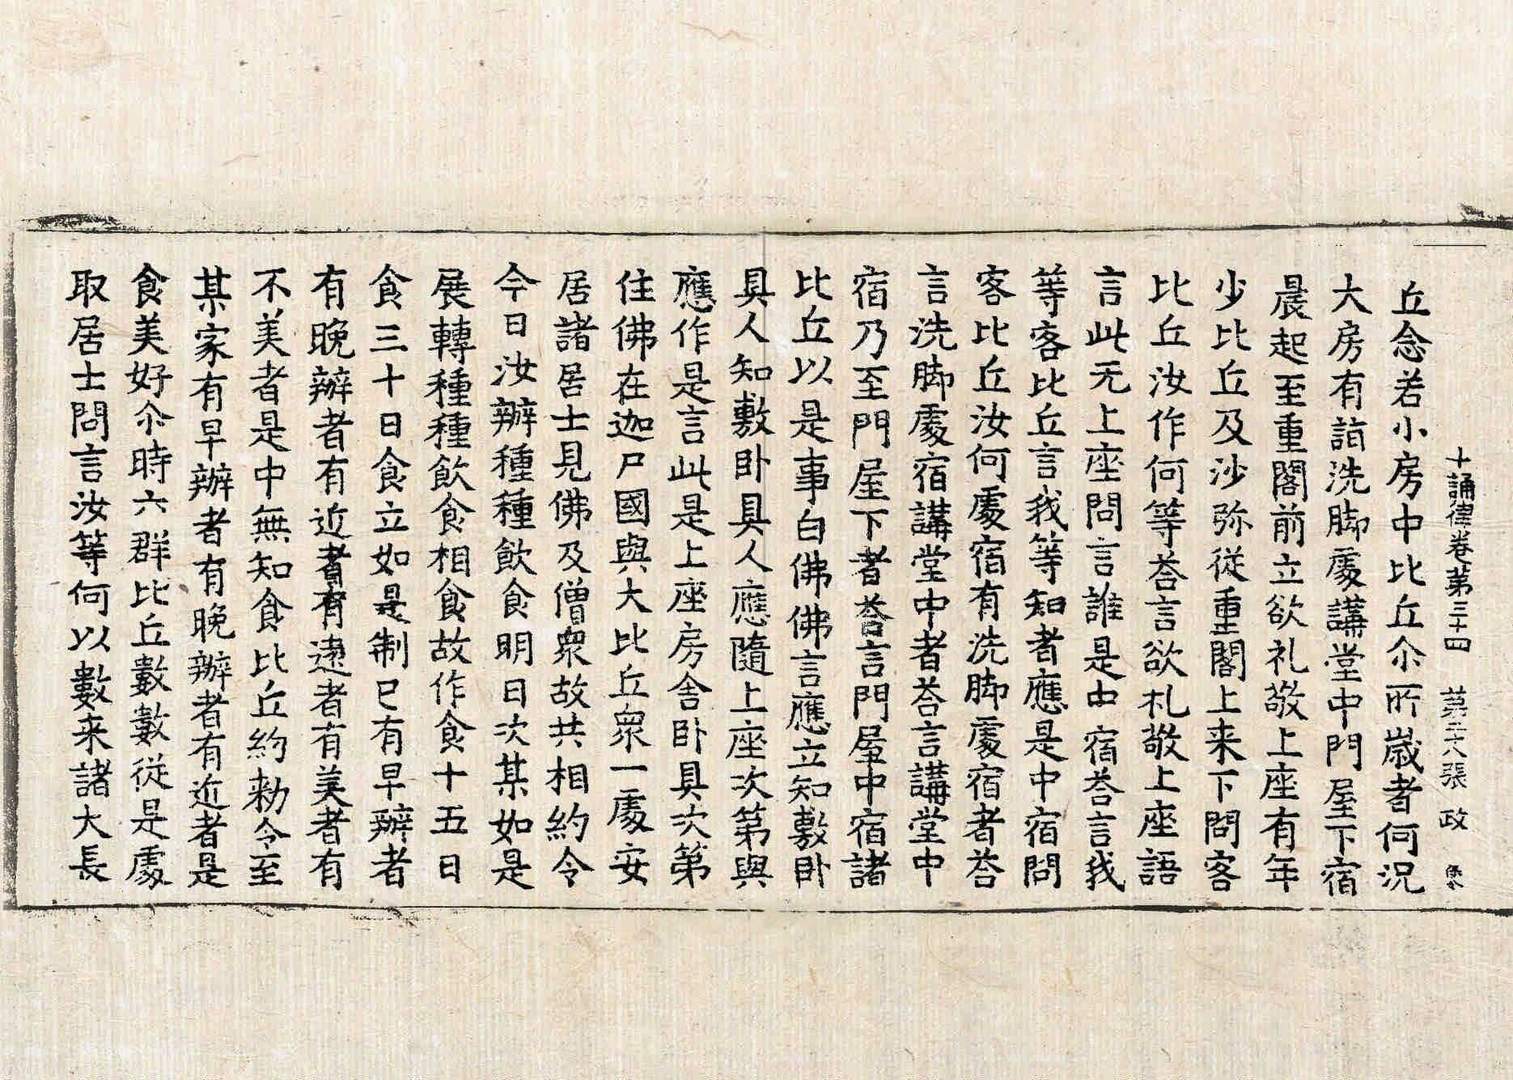 十誦律卷第三十四 第二十八張 政
丘念若小房中比丘尒所歲者何況
大房有諸洗脚處講堂中門屋下宿
晨起至重閣前立欲礼敬上座有年
少比丘及沙弥從重閣上来下問客
比丘汝作何等荅言欲礼敬上座語
言此无上座問言誰是中宿荅言我
等客比丘言我等知者應是中宿問
客比丘汝何處宿有洗脚處宿者荅
言洗脚處宿講堂中者荅言講堂中
宿乃至門屋下者荅言門屋中宿諸
比丘以是事白佛佛言應立知敷卧
具人知敷卧具人應隨上座次第與
應作是言此是上座房舍卧具次第
住佛在迦尸國與大比丘眾一處安
居諸居士見佛及僧眾故共相約令
今日汝辦種種飲食明日次某如是
展轉種種飲食相食故作食十五日
食三十日食立如是制已有早辦者
有晚辦者有近者有遠者有美者有
不美者是中無知食比丘約勑令至
某家有早辦者有晚辦者有近者是
食美好尒時六群比丘數數從是處
取居士問言汝等何以數来諸大長